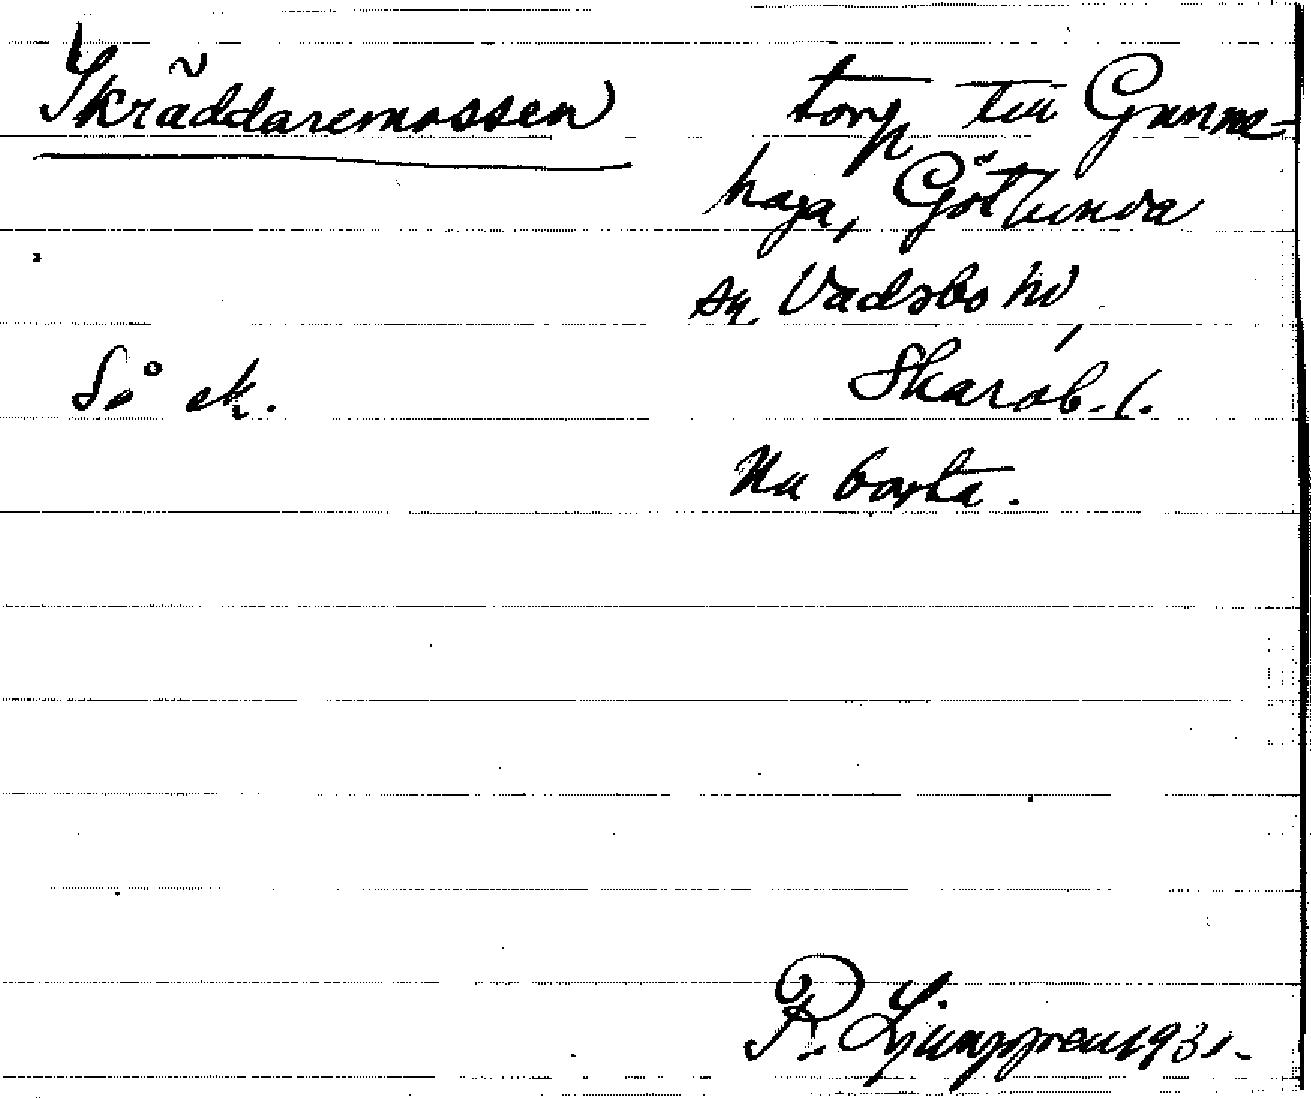 Skräddaremossen
torp till Gunne-
haga, Götlunda
sn, Vadsbo hd,
Så ek.
Skarab. l.
Nu borta.
R. Ljunggren 1931.